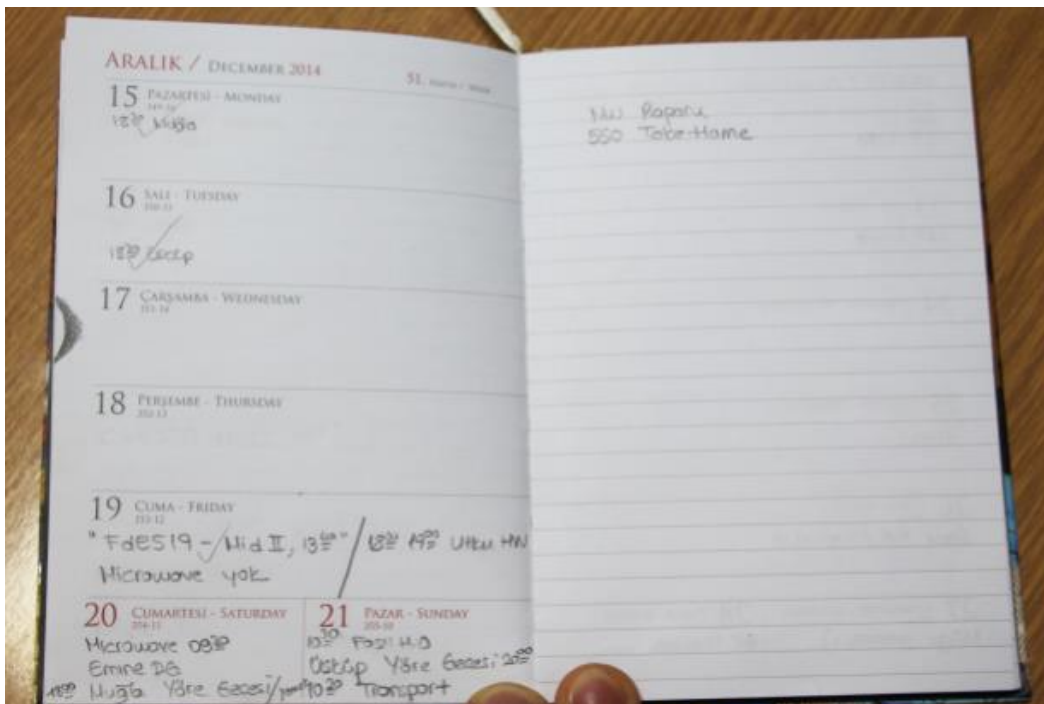 ARALIK / DECEMBER 2014
51.
15 PAZARTESİ - MONDAY
18:30 Muğla
16 SALI - TUESDAY
18:30
17 ÇARŞAMBA - WEDNESDAY
351-14
18 PERŞEMBE - THURSDAY
352-13
19 CUMA - FRIDAY
353-12
"FdeS19 - Mid II, 13 " / 19:00 Utku HW
Microwave yok
20 CUMARTESİ - SATURDAY
354-11
Microwave 08:30
Emre DG
Muğla Yöre Gecesi/
21 PAZAR - SUNDAY
355-10
10:30
Üsküp Yöre Gecesi 20:00
Transport
Raporu
550 Tobe-Home